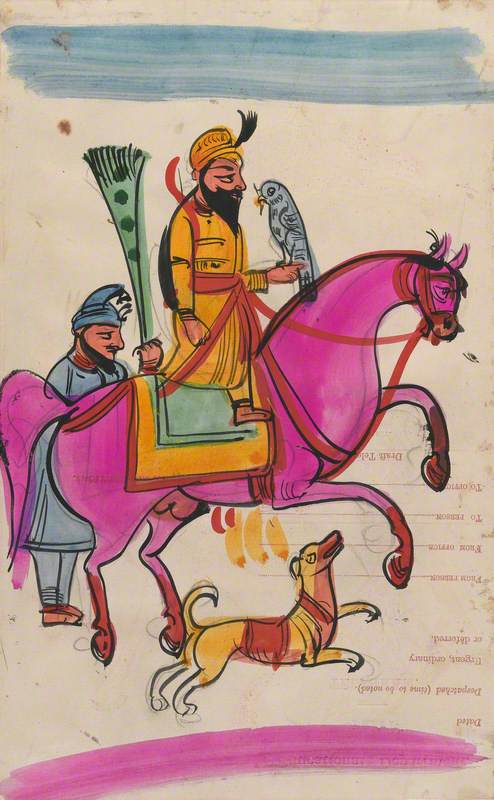 Dated
Despatched (time to be noted).
Urgent, ordinary
or deferred.
FROM PERSON
FROM OFFICE
TO PERSON
TO OFFICE
Draft